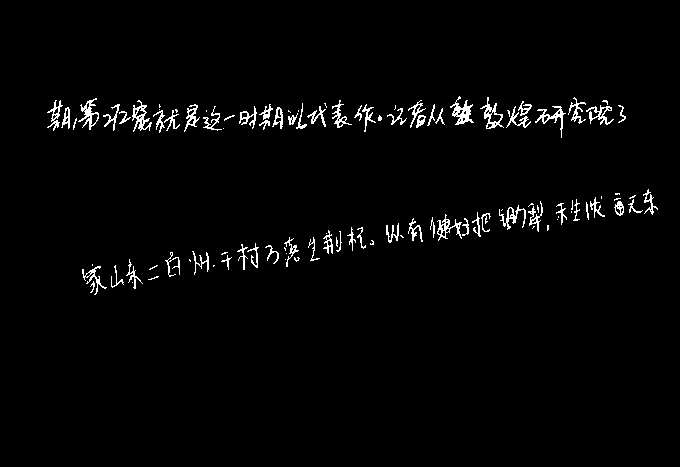 期,第212窟就是这一时期的代表作。记者从敦煌研究院了
家山东二百州.千村万落生荆杞。纵有健妇把锄犁,禾生陇亩无东